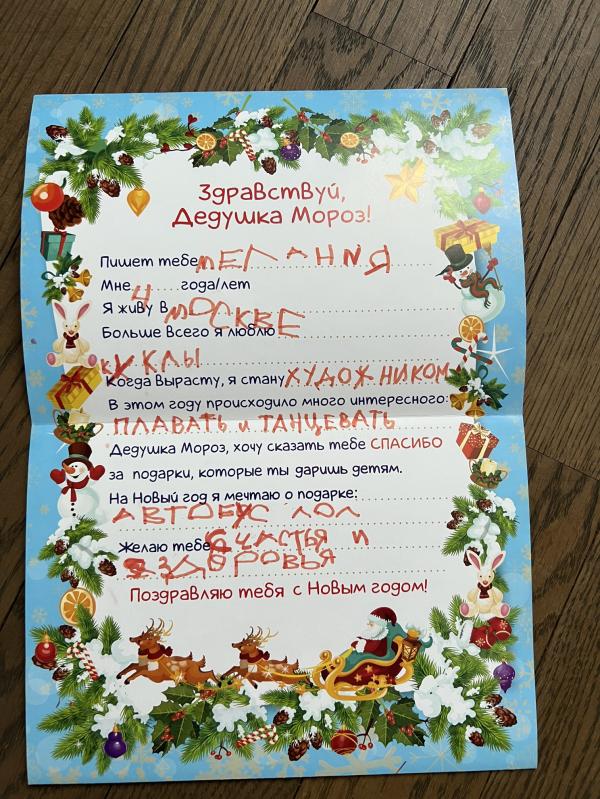 Здравствуй,
Дедушка Мороз!
Пишет тебе МЕЛАНИЯ
Мне 4 года/лет
Я живу в МОСКВЕ
Больше всего я люблю
КУКЛЫ
Когда вырасту, я стану ХУДОЖНИКОМ
В этом году происходило много интересного:
ПЛАВАТЬ и ТАНЦЕВАТЬ
Дедушка Мороз, хочу сказать тебе СПАСИБО
за подарки, которые ты даришь детям.
На Новый год я мечтаю о подарке:
АВТОБУС ЛОЛ
Желаю тебе СЧАСТЬЯ И
ЗДОРОВЬЯ
Поздравляю тебя с Новым годом!